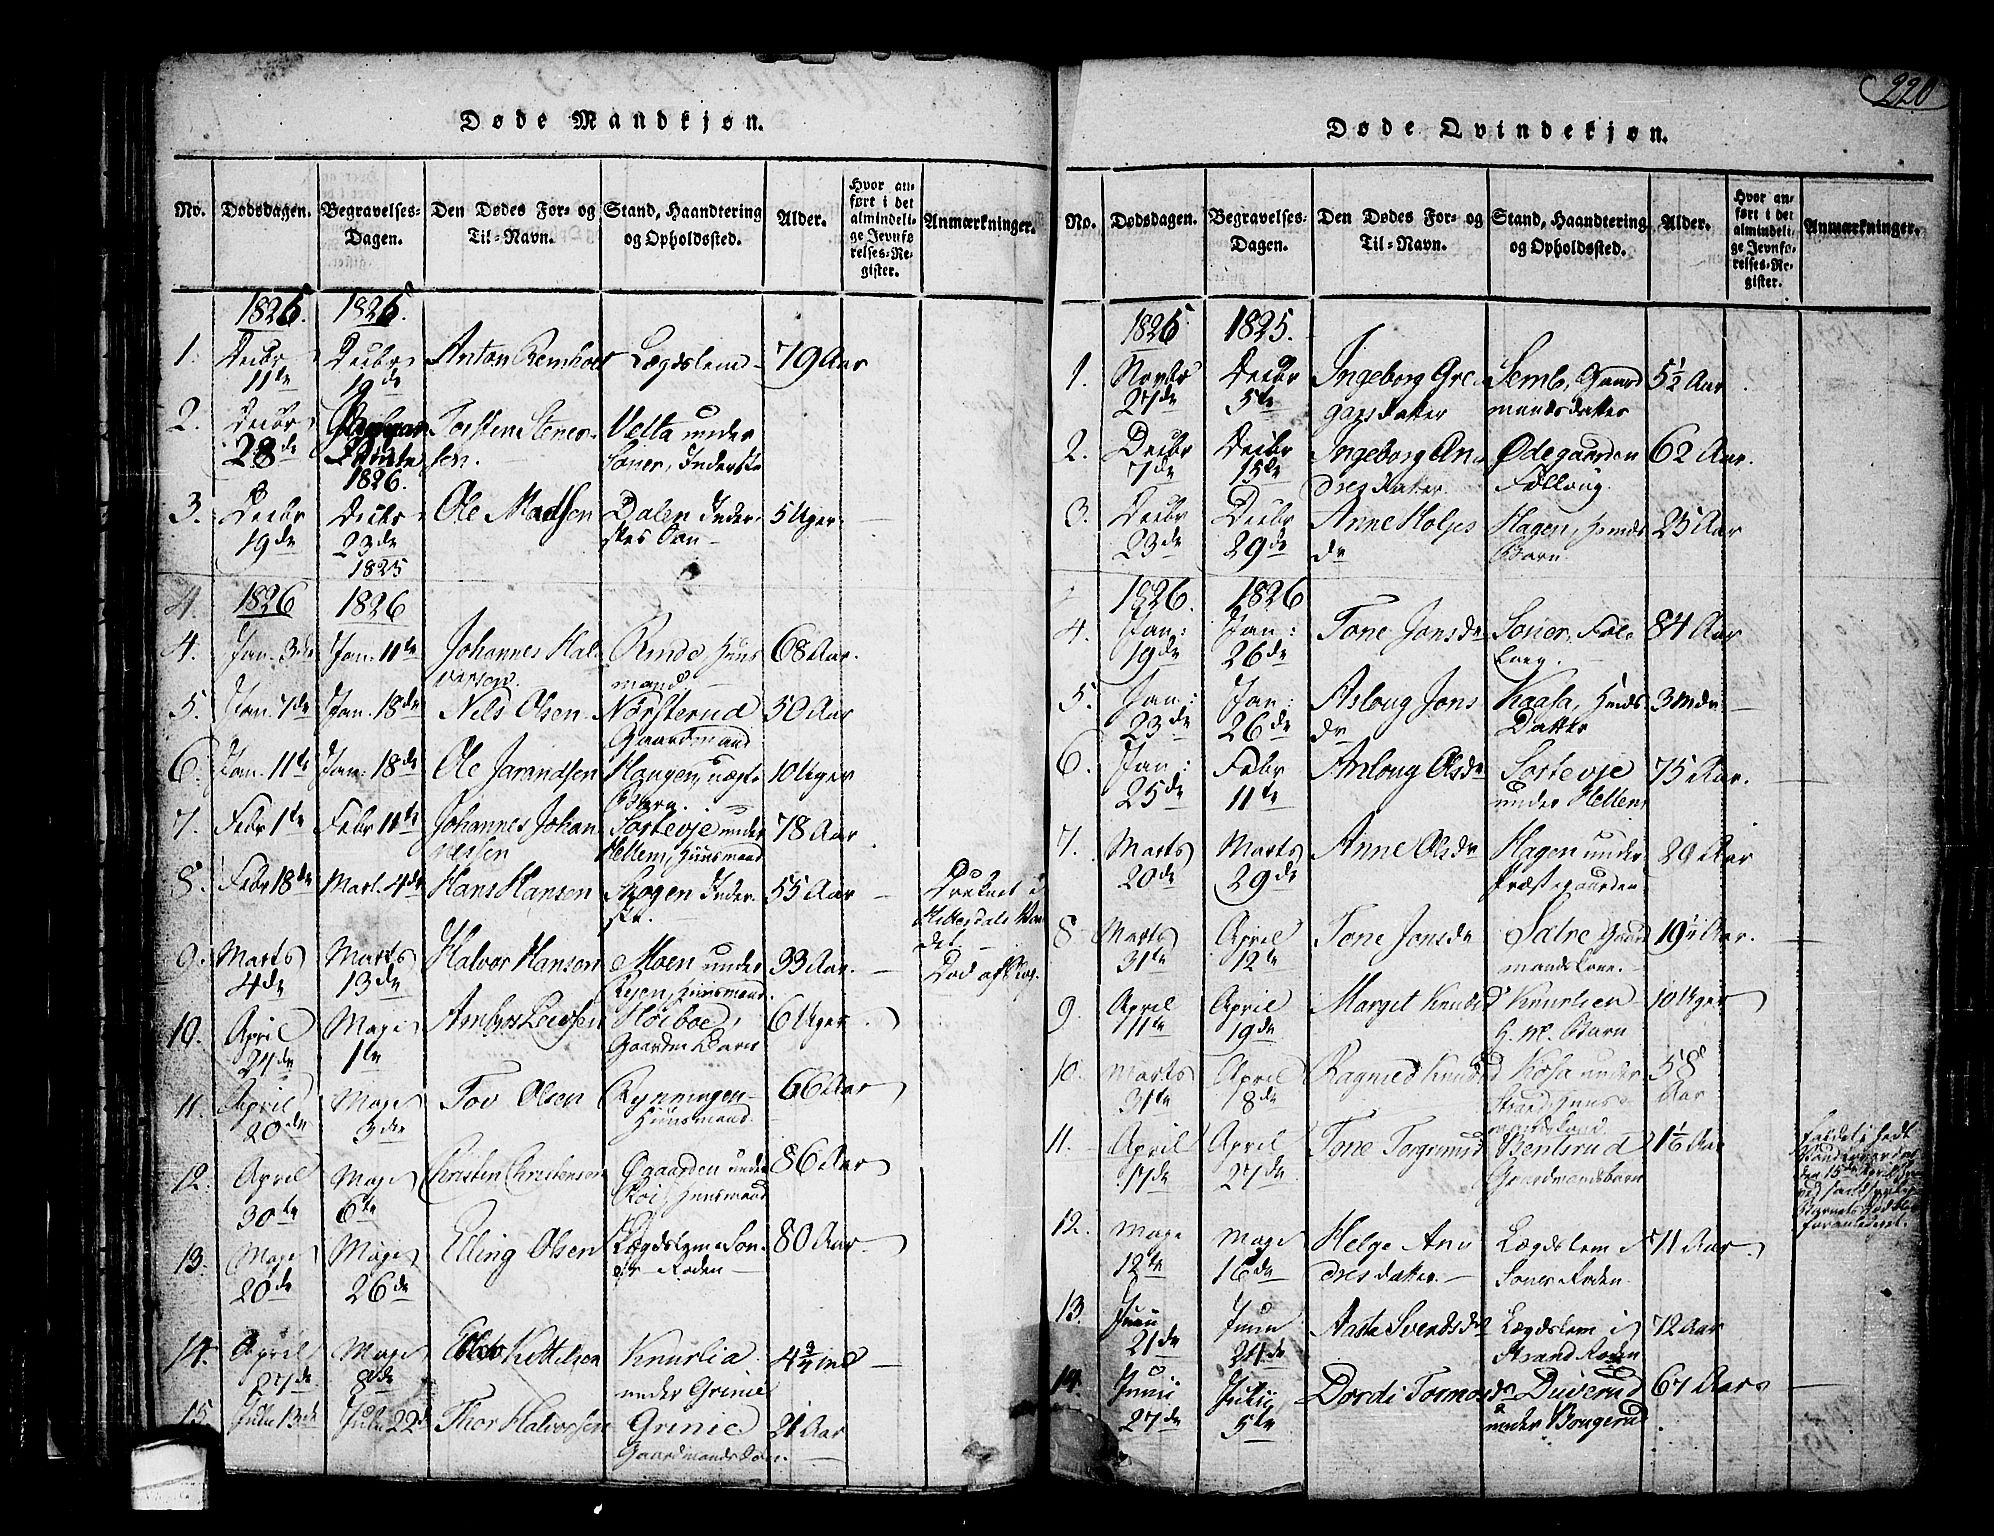 220
Døde Mandkjøn.
No. Dødsdagen. Begravelses-Dagen. Den Dødes For- og Til-Navn. Stand, Haandtering og Opholdssted. Alder. Hvor anført i det almindelige Jevnførelses-Register. Anmærkninger.
1825. 1825.
1. Decbr 11te Decbr 19de Anton Lægdslem 79 Aar
2. Decbr 28de Torsten Stenersen. Velta under Soner, Inderste
1826.
3. Decbr 19de Decbr 23de 1825 Ole Madsen Dalen Inderstes Søn 5 Uger
4. 1826 1826
4. Jan. 3de Jan. 11te Johannes Halversen. Rinde Huusmand 68 Aar.
5. Jan. 7de Jan. 18de Nils Olsen Nørsterud Gaardmand 50 Aar
6. Jan. 11te Jan. 18de Ole Jarandsen Haugen, uægte Barn. 10 Uger
7. Febr 1te Febr 11te Johannes Johannessen Sostevje under Hellem, Huusmand 78 Aar
8. Febr 18de Mart. 4de Hans Hansen Skogen Inderste. 55 Aar Druknet i Hitterdals Vandet
9. Marts 4de Marts 13de Halvor Hansen Moen under Huusmand. 33 Aar. Død af
10. April 24de Mage 1te Leivsen Høiboe, Gaardm. Barn 6 Uger
11. April 20de Mage 3die Tov Olsen Rynningen Huusmand 66 Aar
12. April 30te Mage 6te Christen Christensen Øgaarden under Huusmand 86 Aar
13. Mage 20de Mage 26de Elling Olsen Lægdslem Soner Roden 80 Aar.
14. April 27de Mage 8de Kettilsen Knurlia under Grinie 4 3/4 md
15. Julii 13de Julii 22de Thor Halvorsen Grinie Gaardmands Søn. 21 Aar
Døde Qvindekjøn.
No. Dødsdagen. Begravelses-Dagen. Den Dødes For- og Til-Navn. Stand, Haandtering og Opholdssted. Alder. Hvor anført i det almindelige Jevnførelses-Register. Anmærkninger.
1825 1825.
1. Novbr 27de Decbr 5te Ingeborg Gregarsdatter Semb, Gaardmandsdatter 5 1/2 Aar
2. Decbr 7de Decbr 15te Ingeborg Andresdatter Ødegaarden Følloug. 62 Aar.
3. Decbr 23de Decbr 29de Anne Holjesdr Hagen, Hmds Barn 25 Aar
1826. 1826
4. Jan: 19de Jan: 26de Tone Jonsdr Soner, 84 Aar
5. Jan: 23de Jan: 26de Asloug Jonsdr Kaasa, Hmds Datter 3 Mdr
6. Jan: 25de Febr 11te Anloug Olsdr Sostevje under Hellem 75 Aar.
7. Marts 20de Marts 29de Anne Olsdr Hagen under Præstegaarden 29 Aar
8 Marts 31te April 12te Tone Jonsdr Sætre Gaardmandskone. 19 1/2 Aar.
9. April 11te April 19de Margit Knudsd Knurlien H. M. Barn 10 Uger
10. Marts 31te April 8de Ragnild Knudsd Kosa under Strand, Huusmandskone 58 Aar
11. April 17de April 27de Tone Torgrimsd Bentsrud Gaardmandsbarn 1 1/6 Aar
12. Mage 12te Mage 16de Helge Andresdatter. Lægdslem i Soner Roden. 71 Aar.
13. Junii 21de Junii 24de Aaste Svendsdr Lægdslem i Strand Roden 72 Aar
14. Junii 27de Julii 5te Dordi Tormosdr Duserud under Bougerud 67 Aar